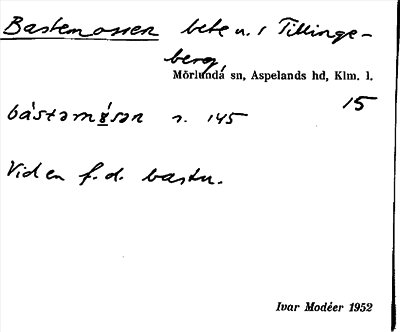 Bastemossen bete u. / Tillinge-
berg
Mörlunda sn, Aspelands hd, Klm. l.
15
bástəmɤsən s. 145
Vid en f.d. bastu.
Ivar Modéer 1952